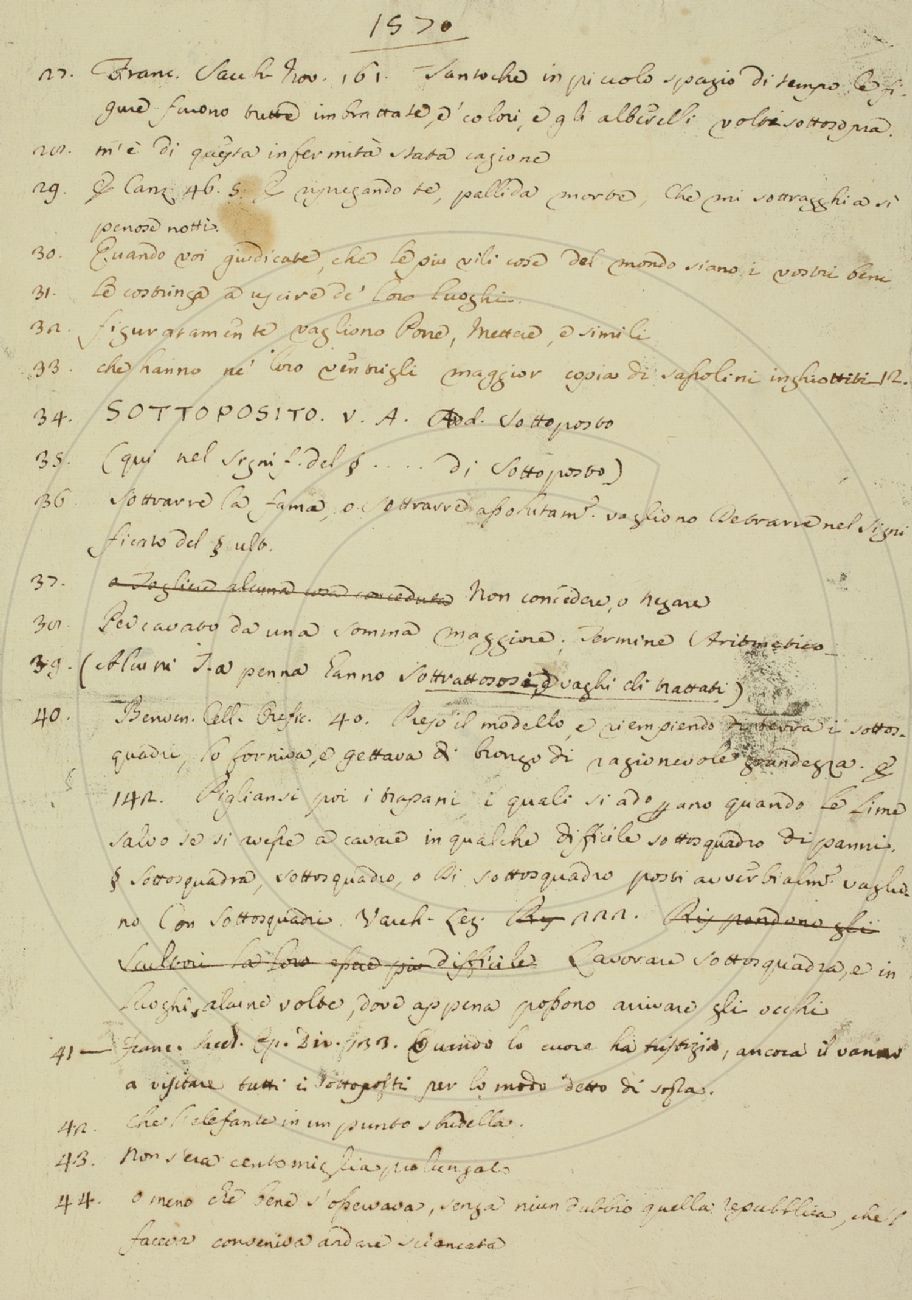 1570
27. Franc. Sacch. Nov. 161. Santoche in piccolo spazio di tempo le fi-
gure furono tutte imbrattate, e' colori, e gli alberelli volti sottosopra.
28. m'è di questa infermità stata cagione
29. E Canz. 46. 5. E rinnegando te, pallida morte, Che mi sottragghia si
penose notti.
30. Quando voi giudicate, che le piu vili cose del mondo siano i vostri beni
31. Le costringa a uscire de' loro luoghi.
32. figuratamente vagliono Porre, Mettere, e simili
33. che hanno ne' loro ventrigli maggior copia di sassolini inghiottiti 12.
34. SOTTOPOSITO. V. A. Add. Sottoposto
35. (qui nel signif. del § .... di Sottoposto)
36 Sottrarre la fama, o Sottrarre assolutam. vagliono Detrarre nel signi
ficato del § ult.
37. o Togliere alcuna cosa conceduta Non concedere, o negare
38. Per cavato da una somma maggiore; Termine Aritmetico
39. (Alcuni T. a penna hanno Sottrattosi, e vaghi di trattati)
40. Benven. Cell. Orefic. 40. Preso il modello, e riempiendo di terra i sottos-
quadri, lo forniva, e gettava di bronzo di ragionevole grandezza. E
142. Pigliansi poi i trapani i quali si adoprano quando le lime
salvo se si avesse a cavare in qualche difficile sottosquadro di panni.
§ Sottosquadra, sottosquadro, o Di sottosquadro posti avverbialm. vaglio
no Con sottosquadri. Varch. Lez. 222. Rispondono gli
Scultori la loro essere più difficile Lavorare sottosquadra, e in
luoghi alcune volte, dove appena possono arrivare gli occhi
41 — Franc. Sacch. Op. Div. 133. Quando lo cuore ha tristizia, ancora il vanno
a visitare tutti i sottoposti per lo modo detto di sopra.
42. Che l'elefante in un punto sbudella.
43. Non s'era cento miglia prolungato
44. o meno che bene s'osservava, senza niun dubbio quella repubblica, che'l
faceva conveniva andare sciancata